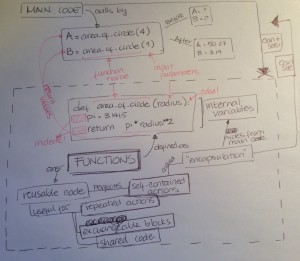 MAIN CODE
calls by
A = area_of_circle(4)
B = area_of_circle(1)
Before
A = ?
B = ?
After
A = 50.27
B = 3.14
Can't see
function name
input parameters
return values
def area_of_circle(radius):
pi = 3.1415
return pi*radius**2
indent
colon!
internal variables
FUNCTIONS
defined as
hides from main code
"encapsulation"
are
reusable code
requires
self-contained actions
useful for
repeated actions
exchangeable blocks
shared code